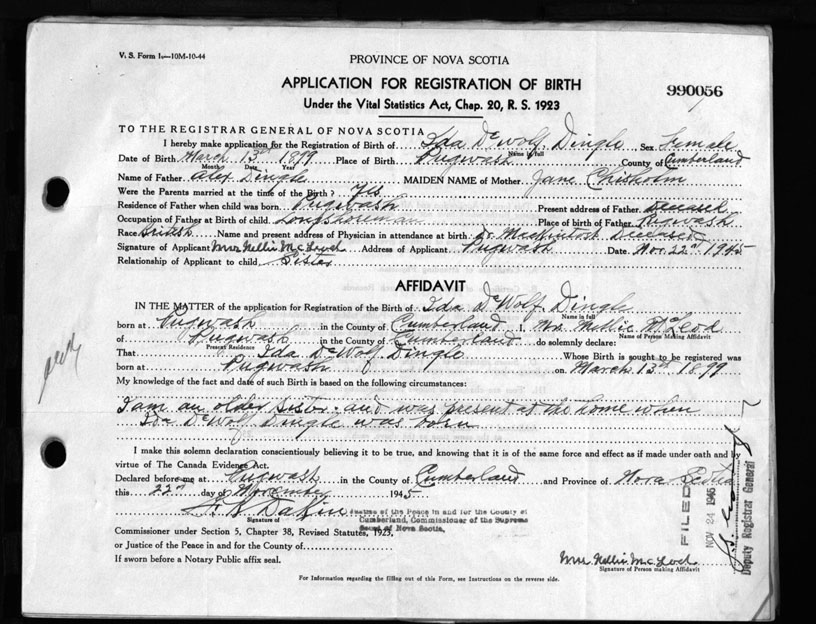 V. S. Form 1.—10M-10-44
PROVINCE OF NOVA SCOTIA
APPLICATION FOR REGISTRATION OF BIRTH
990056
Under the Vital Statistics Act, Chap. 20, R. S. 1923
TO THE REGISTRAR GENERAL OF NOVA SCOTIA
I hereby make application for the Registration of Birth of Ida DeWolf Dingle Sex Female
Name in full
Date of Birth March 13th 1899 Place of Birth Pugwash County of Cumberland
Month Date Year
Name of Father Alex Dingle MAIDEN NAME of Mother Jane Chisholm
Were the Parents married at the time of the Birth? Yes
Residence of Father when child was born. Pugwash Present address of Father
Occupation of Father at Birth of child. Longshoreman Place of birth of Father Pugwash
Race British Name and present address of Physician in attendance at birth. Dr Mackintosh Deceased
Signature of Applicant Mrs Nellie McLeod Address of Applicant Pugwash Date. Nov 22nd 1945
Relationship of Applicant to child Sister
AFFIDAVIT
IN THE MATTER of the application for Registration of the Birth of Ida DeWolf Dingle
Name in full
born at Pugwash in the County of Cumberland I, Mrs Nellie McLeod
Name of Person Making Affidavit
of Pugwash of Cumberland do solemnly declare:
Present Residence
That Ida DeWolf Dingle Whose Birth is sought to be registered was
born at Pugwash on March 13th 1899
My knowledge of the fact and date of such Birth is based on the following circumstances:
I am an older sister and was present at the home when
Ida DeWolf Dingle was born
I make this solemn declaration conscientiously believing it to be true, and knowing that it is of the same force and effect as if made under oath and by
virtue of The Canada Evidence Act.
Declared before me at Pugwash in the County of Cumberland and Province of Nova Scotia
this 22nd day of November 1945
Dakin
Signature of
Justice of the Peace in and for the County of
Cumberland, Commissioner of the Supreme
Court of Nova Scotia.
Commissioner under Section 5, Chapter 38, Revised Statutes, 1923,
or Justice of the Peace in and for the County of
If sworn before a Notary Public affix seal.
Mrs Nellie McLeod
Signature of Person making Affidavit
For Information regarding the filling out of this Form, see Instructions on the reverse side.
FILED
NOV 24 1945
Deputy Registrar General